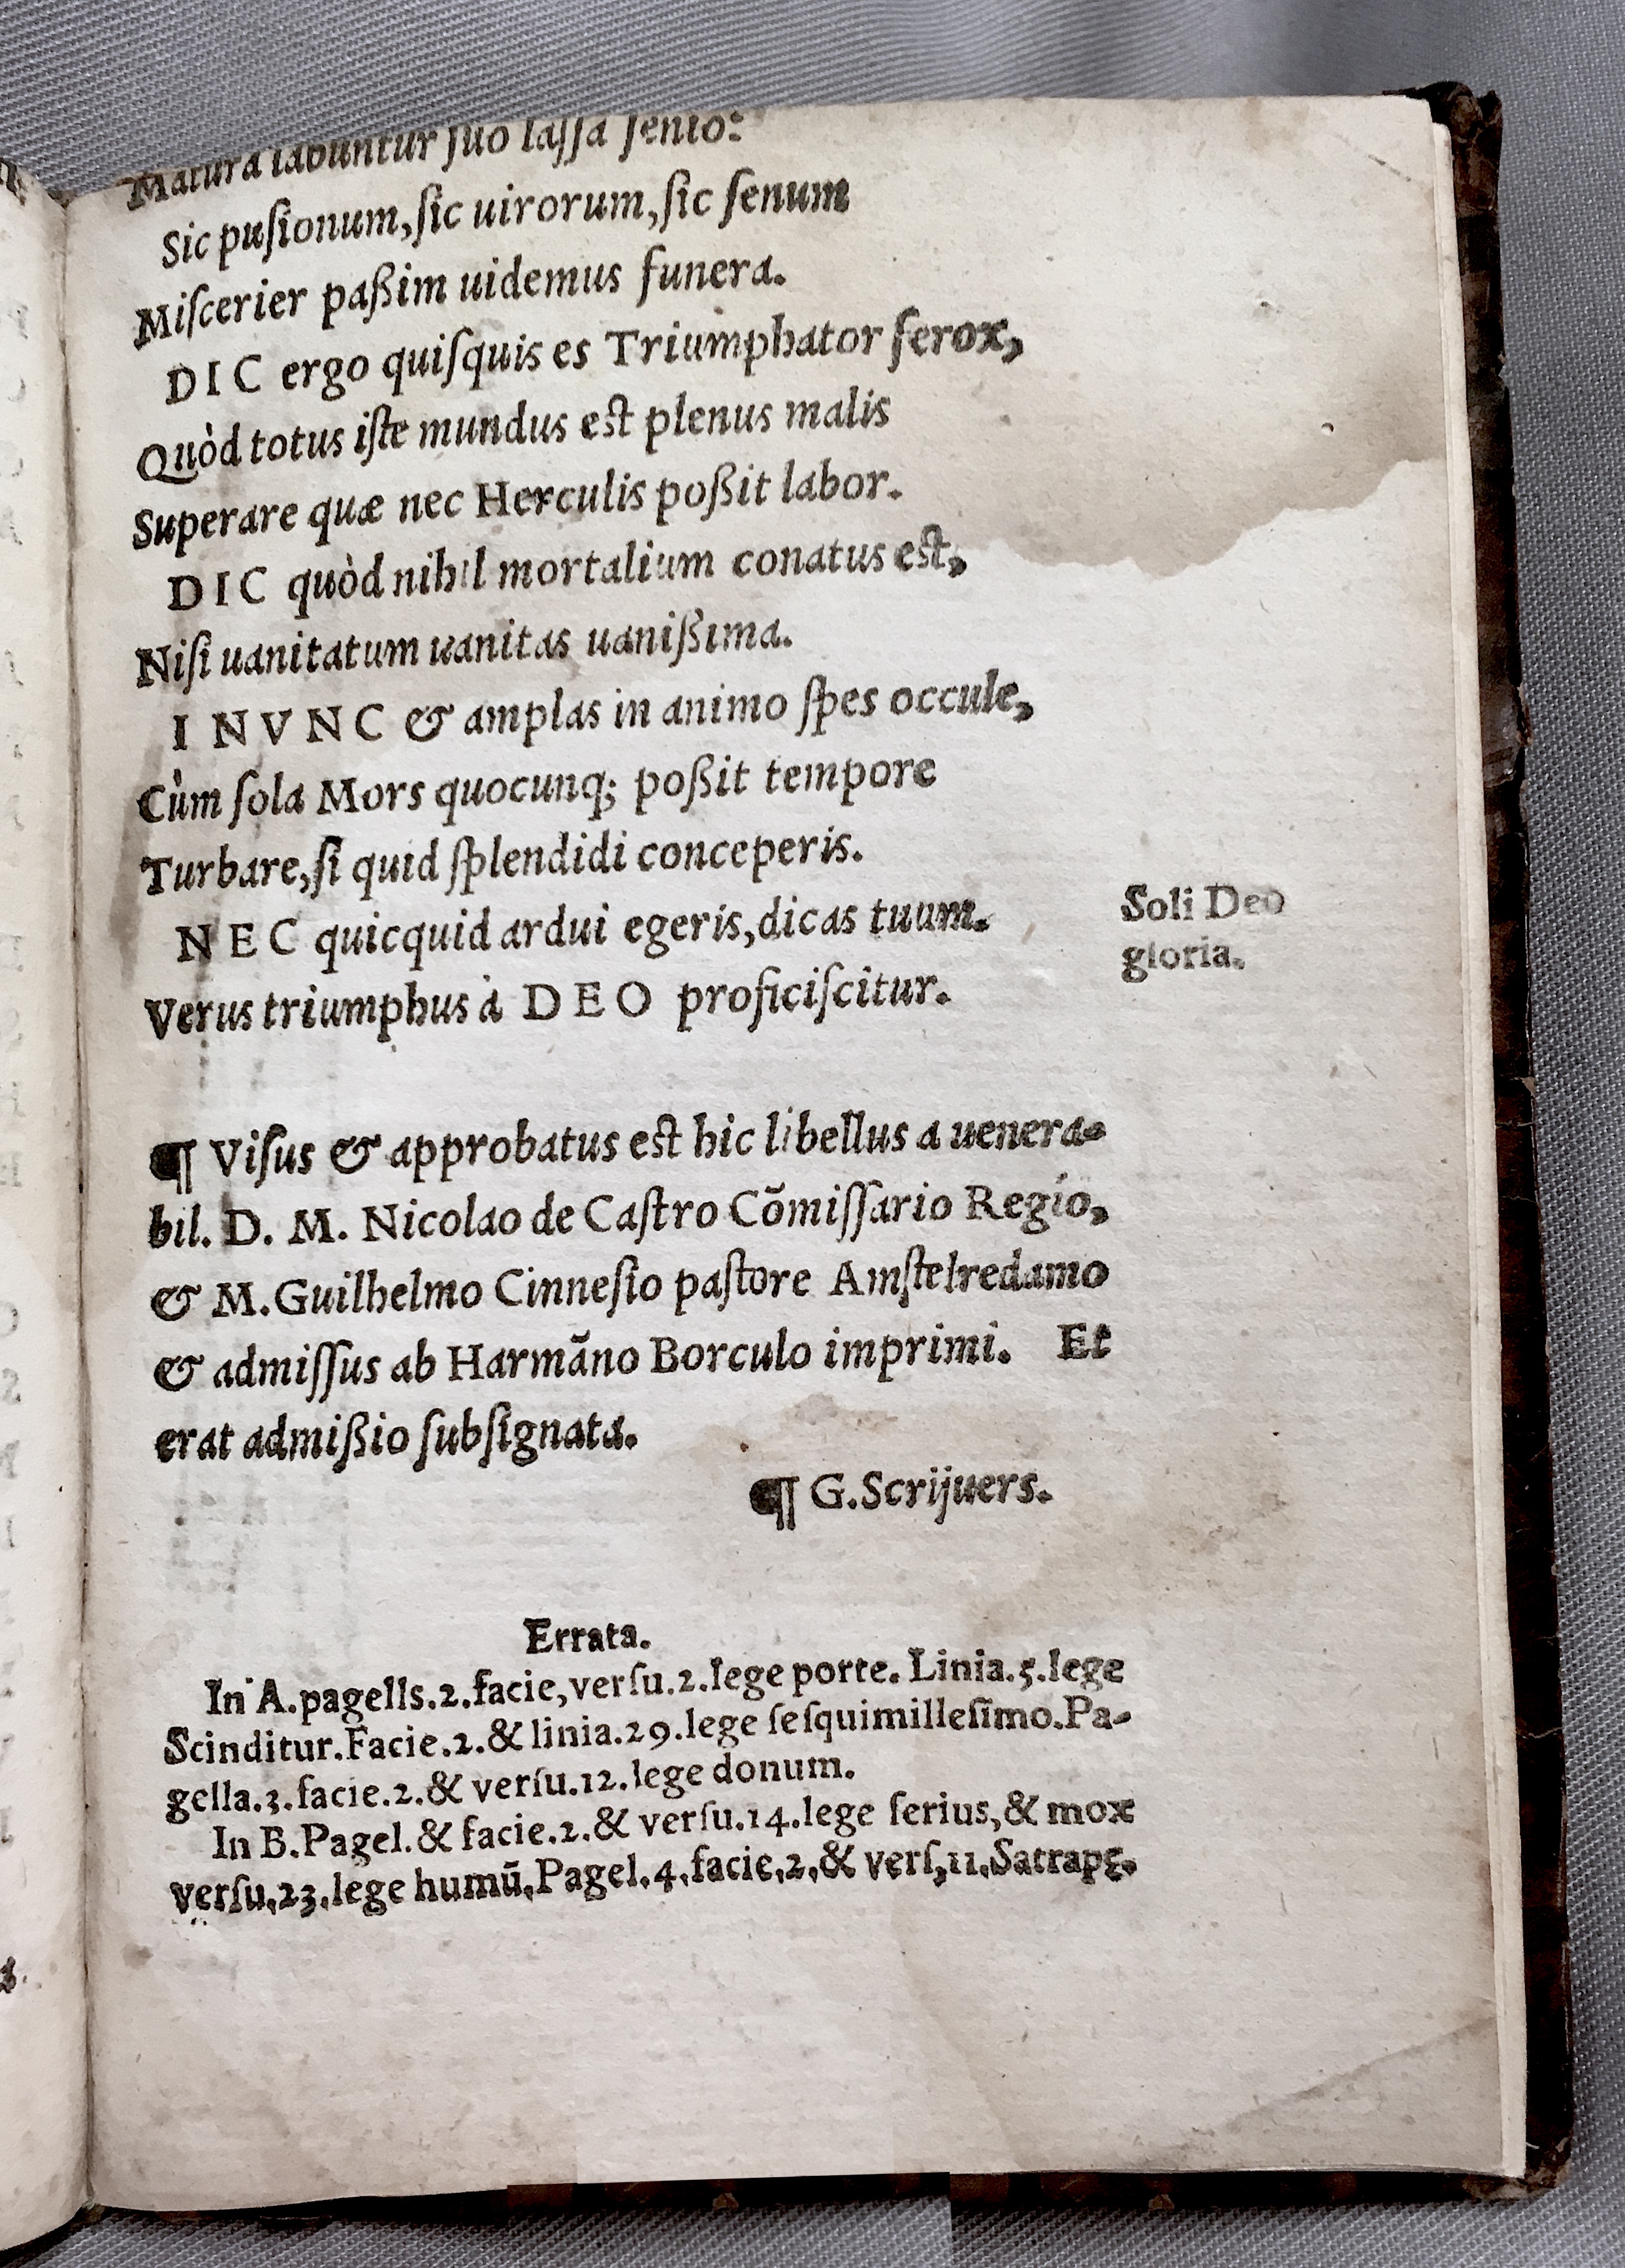 Matura labuntur suo lassa senio:
Sic pusionum, sic uirorum, sic senum
Miscerier paßim uidemus funera.
DIC ergo quisquis es Triumphator ferox,
Quòd totus iste mundus est plenus malis
Superare quæ nec Herculis poßit labor.
DIC quòd nihil mortalium conatus est,
Nisi uanitatum uanitas uanißima.
I NVNC & amplas in animo spes occule,
Cùm sola Mors quocunq; poßit tempore
Turbare, si quid splendidi conceperis.
NEC quicquid ardui egeris, dicas tuum.
Verus triumphus à DEO proficiscitur.
Soli Deo
gloria.
¶ Visus & approbatus est hic libellus a uenera-
bil. D. M. Nicolao de Castro Cõmissario Regio,
& M. Guilhelmo Cinnesio pastore Amstelredamo
& admissus ab Harmãno Borculo imprimi. Et
erat admißio subsignata.
¶ G. Scrijuers.
Errata.
In A. pagells. 2. facie, versu. 2. lege porte. Linia. 5. lege
Scinditur. Facie. 2. & linia. 29. lege sesquimillesimo. Pa-
gella. 3. facie. 2. & versu. 12. lege donum.
In B. Pagel. & facie. 2. & versu. 14. lege serius, & mox
versu, 23, lege humũ, Pagel, 4, facie, 2, & vers, 11, Satrapę.